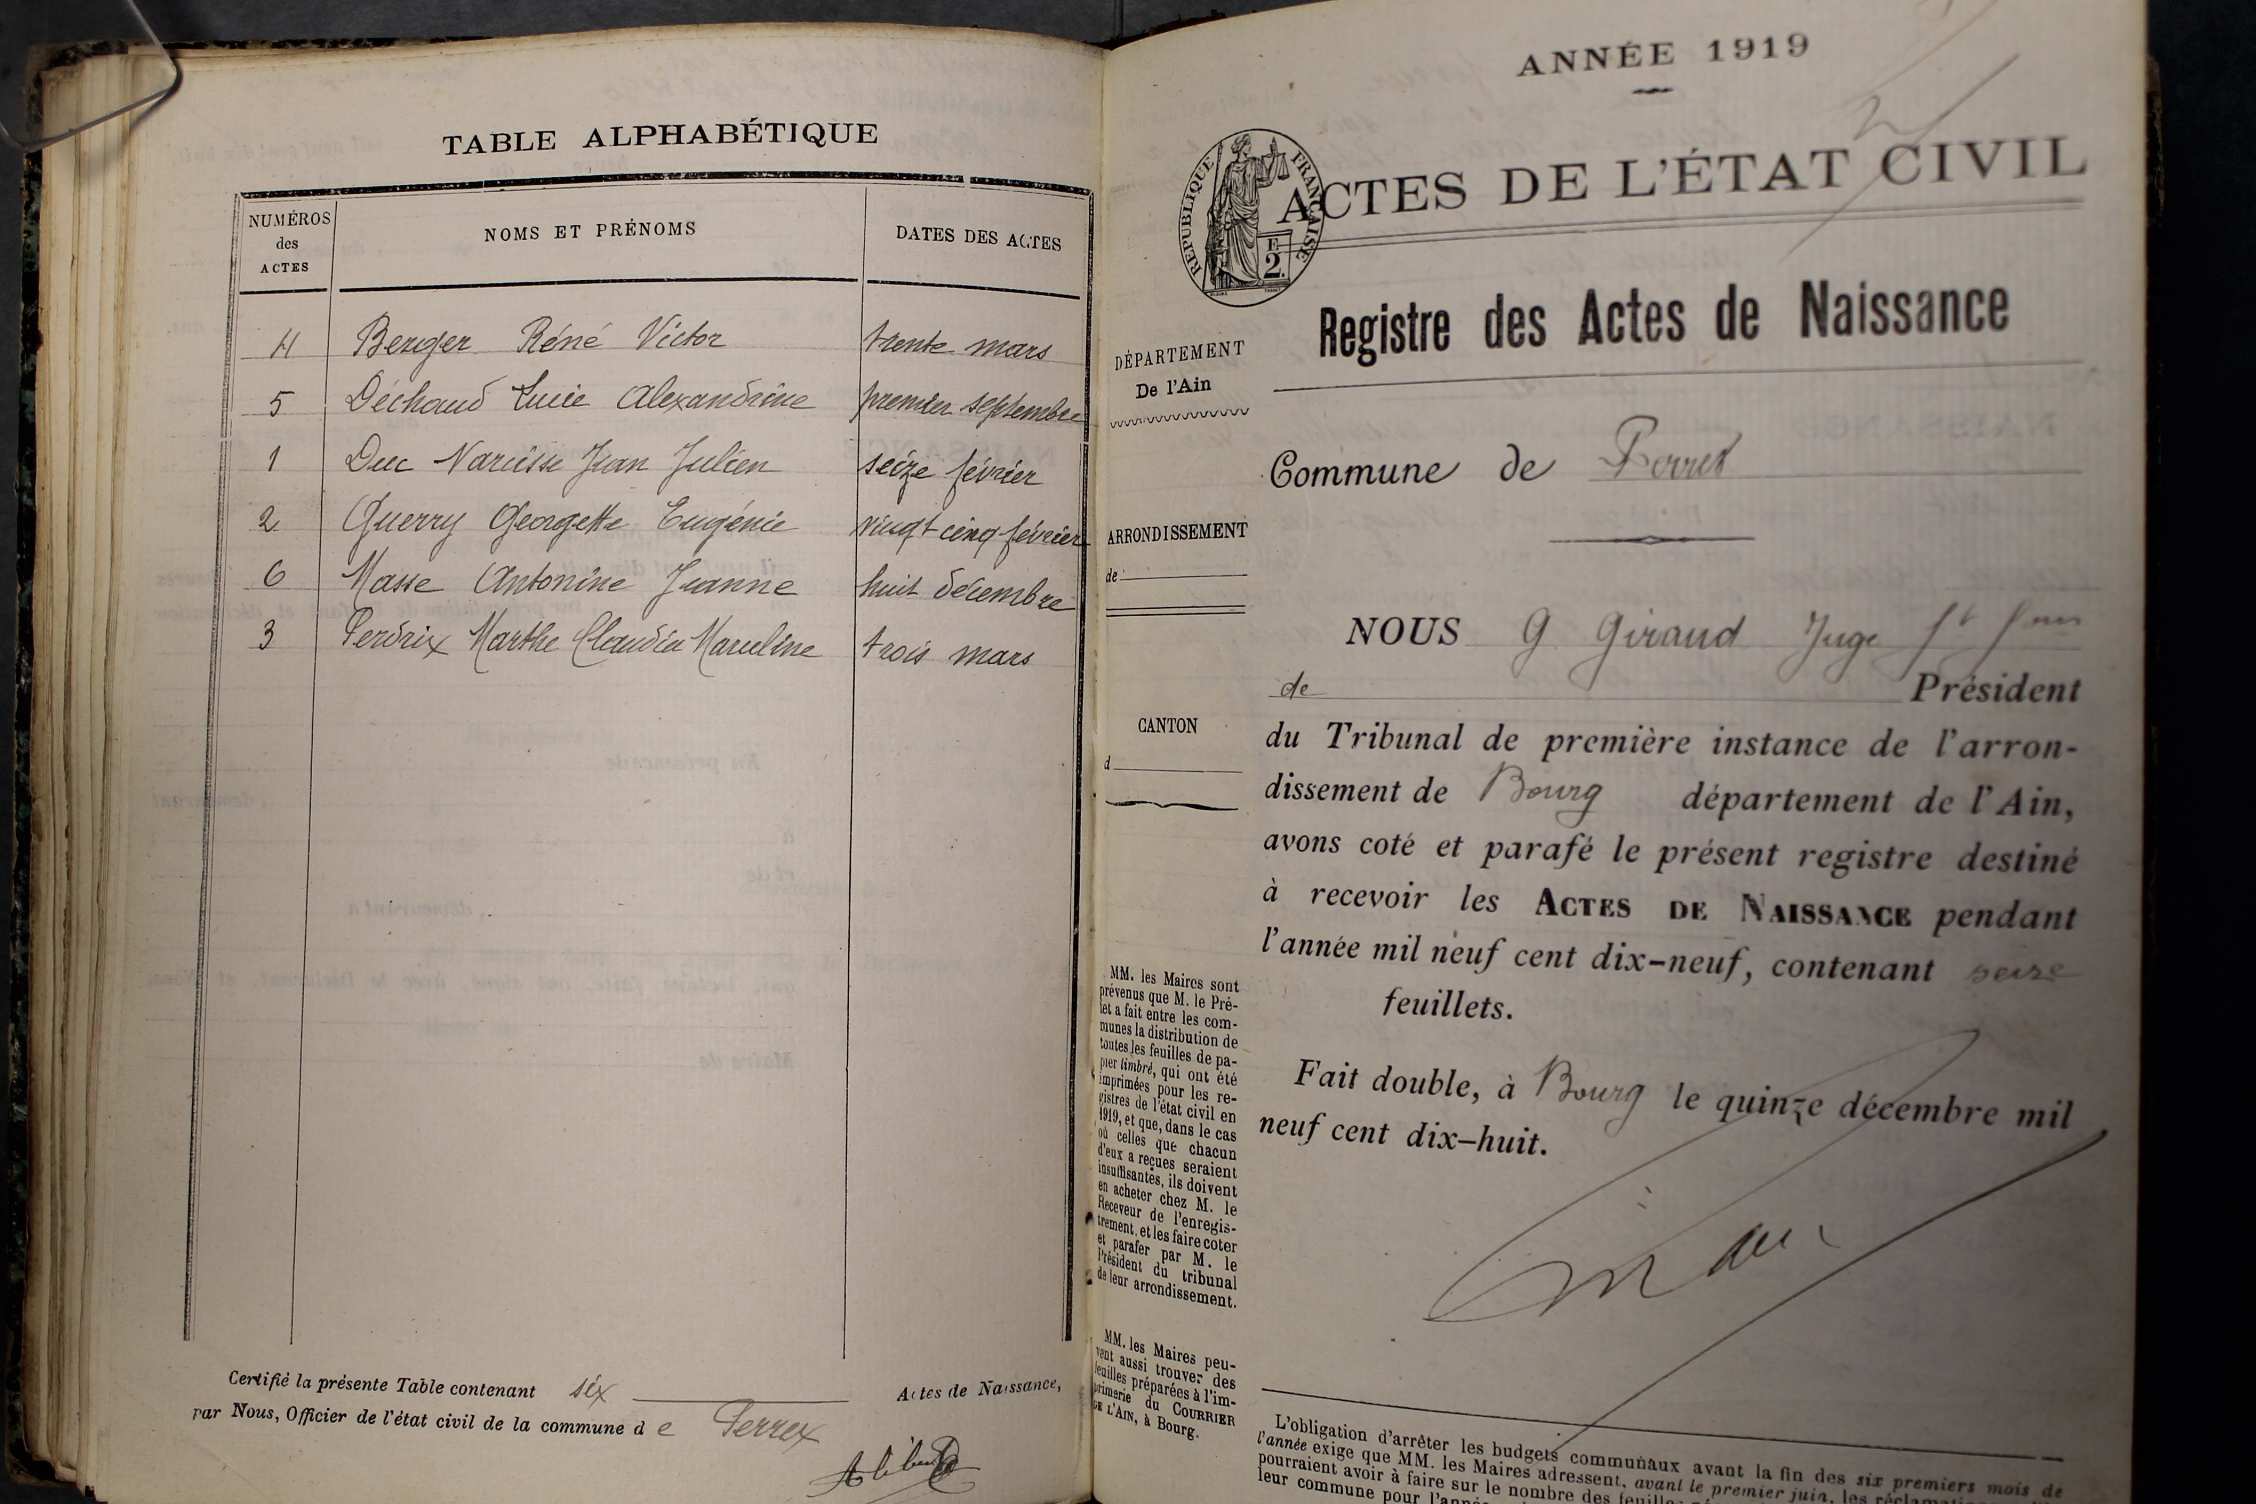 TABLE ALPHABÉTIQUE
NUMÉROS des ACTES NOMS ET PRÉNOMS DATES DES ACTES
4 Berger Réné Victor trente mars
5 Déchaud Lucie Alexandrine premier septembre
1 Duc Narcisse Jean Julien seize février
2 Guerry Georgette Eugénie vingt cinq février
6 Masse Antonine Jeanne huit décembre
3 Perdrix Marthe Claudia Marceline trois mars
Certifié la présente Table contenant six Actes de Naissance,
par Nous, Officier de l'état civil de la commune de Perrex
ANNÉE 1919
ACTES DE L'ÉTAT CIVIL
RÉPUBLIQUE FRANÇAISE
E
2.
Registre des Actes de Naissance
DÉPARTEMENT
De l'Ain
Commune de Perrex
ARRONDISSEMENT
de
NOUS G Giraud Juge
de Président
CANTON
d
du Tribunal de première instance de l'arron-
dissement de Bourg département de l'Ain,
avons coté et parafé le présent registre destiné
à recevoir les ACTES DE NAISSANCE pendant
l'année mil neuf cent dix-neuf, contenant seize
feuillets.
Fait double, à Bourg le quinze décembre mil
neuf cent dix-huit.
MM. les Maires sont
prévenus que M. le Pré-
fet a fait entre les com-
munes la distribution de
toutes les feuilles de pa-
pier timbré, qui ont été
imprimées pour les re-
gistres de l'état civil en
1919, et que, dans le cas
où celles que chacun
d'eux a reçues seraient
insuffisantes, ils doivent
en acheter chez M. le
Receveur de l'enregis-
trement, et les faire coter
et parafer par M. le
Président du tribunal
de leur arrondissement.
MM. les Maires peu-
vent aussi trouver des
feuilles préparées à l'im-
primerie du COURRIER
DE L'AIN, à Bourg.
L'obligation d'arrêter les budgets communaux avant la fin des six premiers mois de
l'année exige que MM. les Maires adressent, avant le premier juin, les
pourraient avoir à faire sur le nombre des
leur commune pour